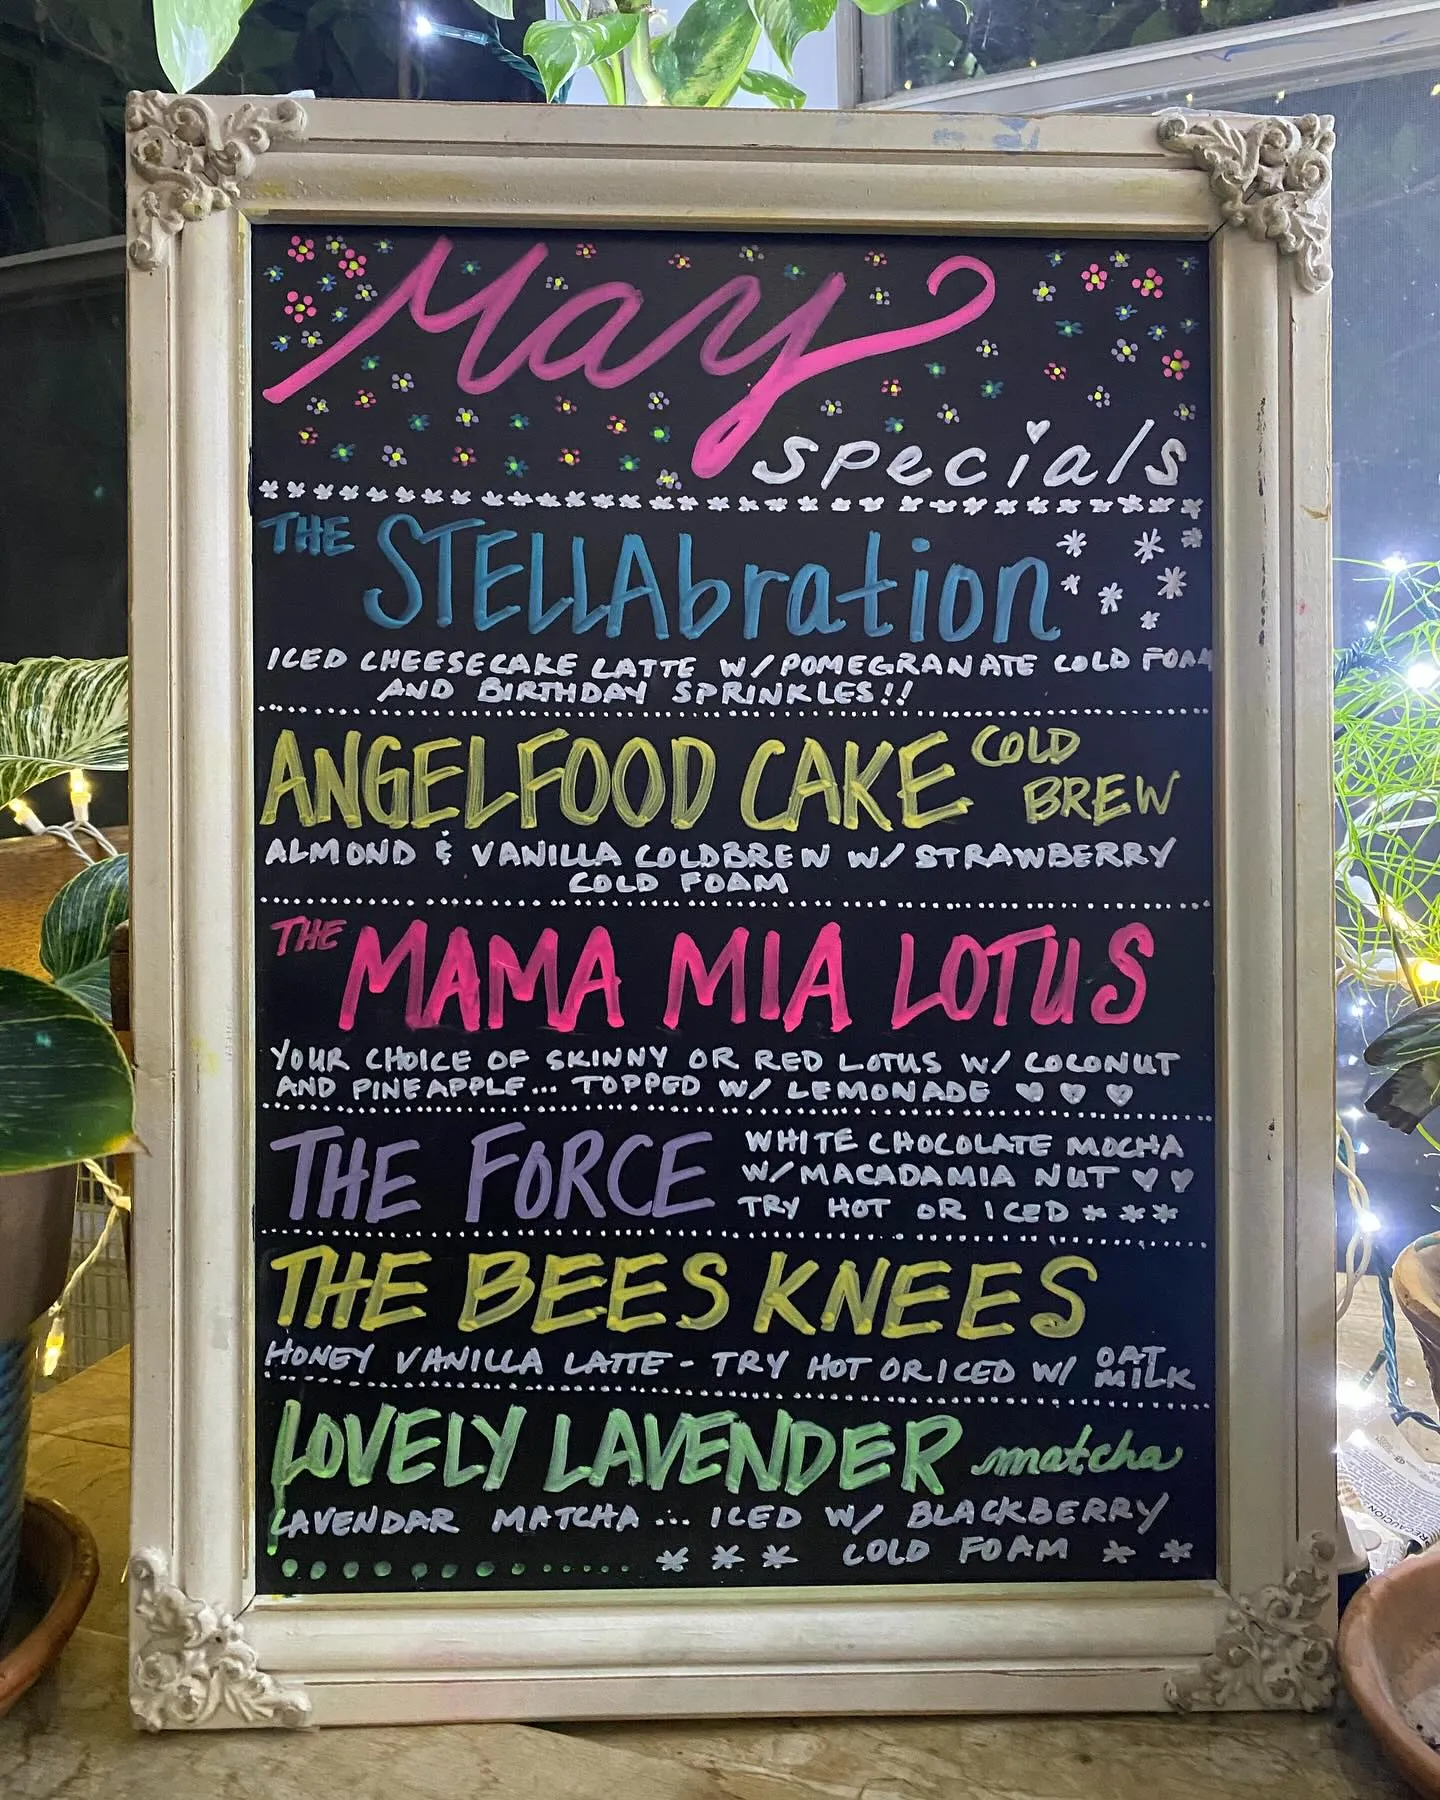 May
specials
THE STELLAbration
ICED CHEESECAKE LATTE W/ POMEGRANATE COLD FOAM
AND BIRTHDAY SPRINKLES!!
ANGELFOOD CAKE COLD
BREW
ALMOND & VANILLA COLDBREW W/ STRAWBERRY
COLD FOAM
THE MAMA MIA LOTUS
YOUR CHOICE OF SKINNY OR RED LOTUS W/ COCONUT
AND PINEAPPLE... TOPPED W/ LEMONADE
THE FORCE
WHITE CHOCOLATE MOCHA
W/ MACADAMIA NUT
TRY HOT OR ICED
THE BEES KNEES
HONEY VANILLA LATTE - TRY HOT OR ICED W/ OAT
MILK
LOVELY LAVENDER matcha
LAVENDAR MATCHA ... ICED W/ BLACKBERRY
COLD FOAM